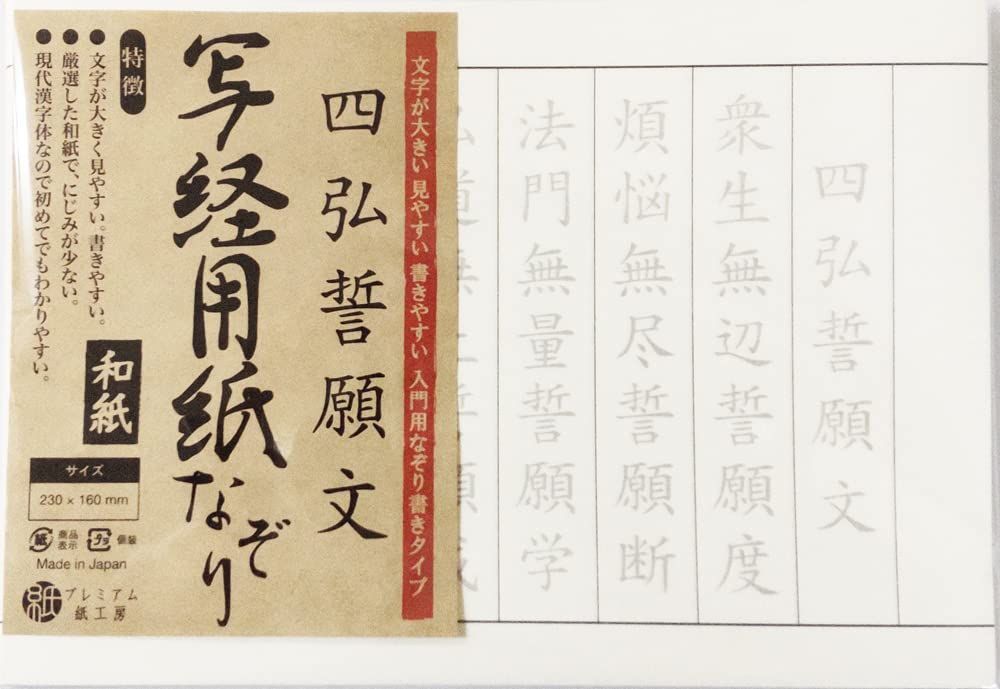 四弘誓願文
衆生無辺誓願度
煩悩無尽誓願断
法門無量誓願学
文字が大きい 見やすい 書きやすい 入門用なぞり書きタイプ
四弘誓願文
写経用紙なぞり
特徴
● 文字が大きく見やすい。書きやすい。
● 厳選した和紙で、にじみが少ない。
● 現代漢字体なので初めてでもわかりやすい。
和紙
サイズ
230 × 160 mm
紙 商品表示 プラ 個装
Made in Japan
紙 プレミアム
紙工房